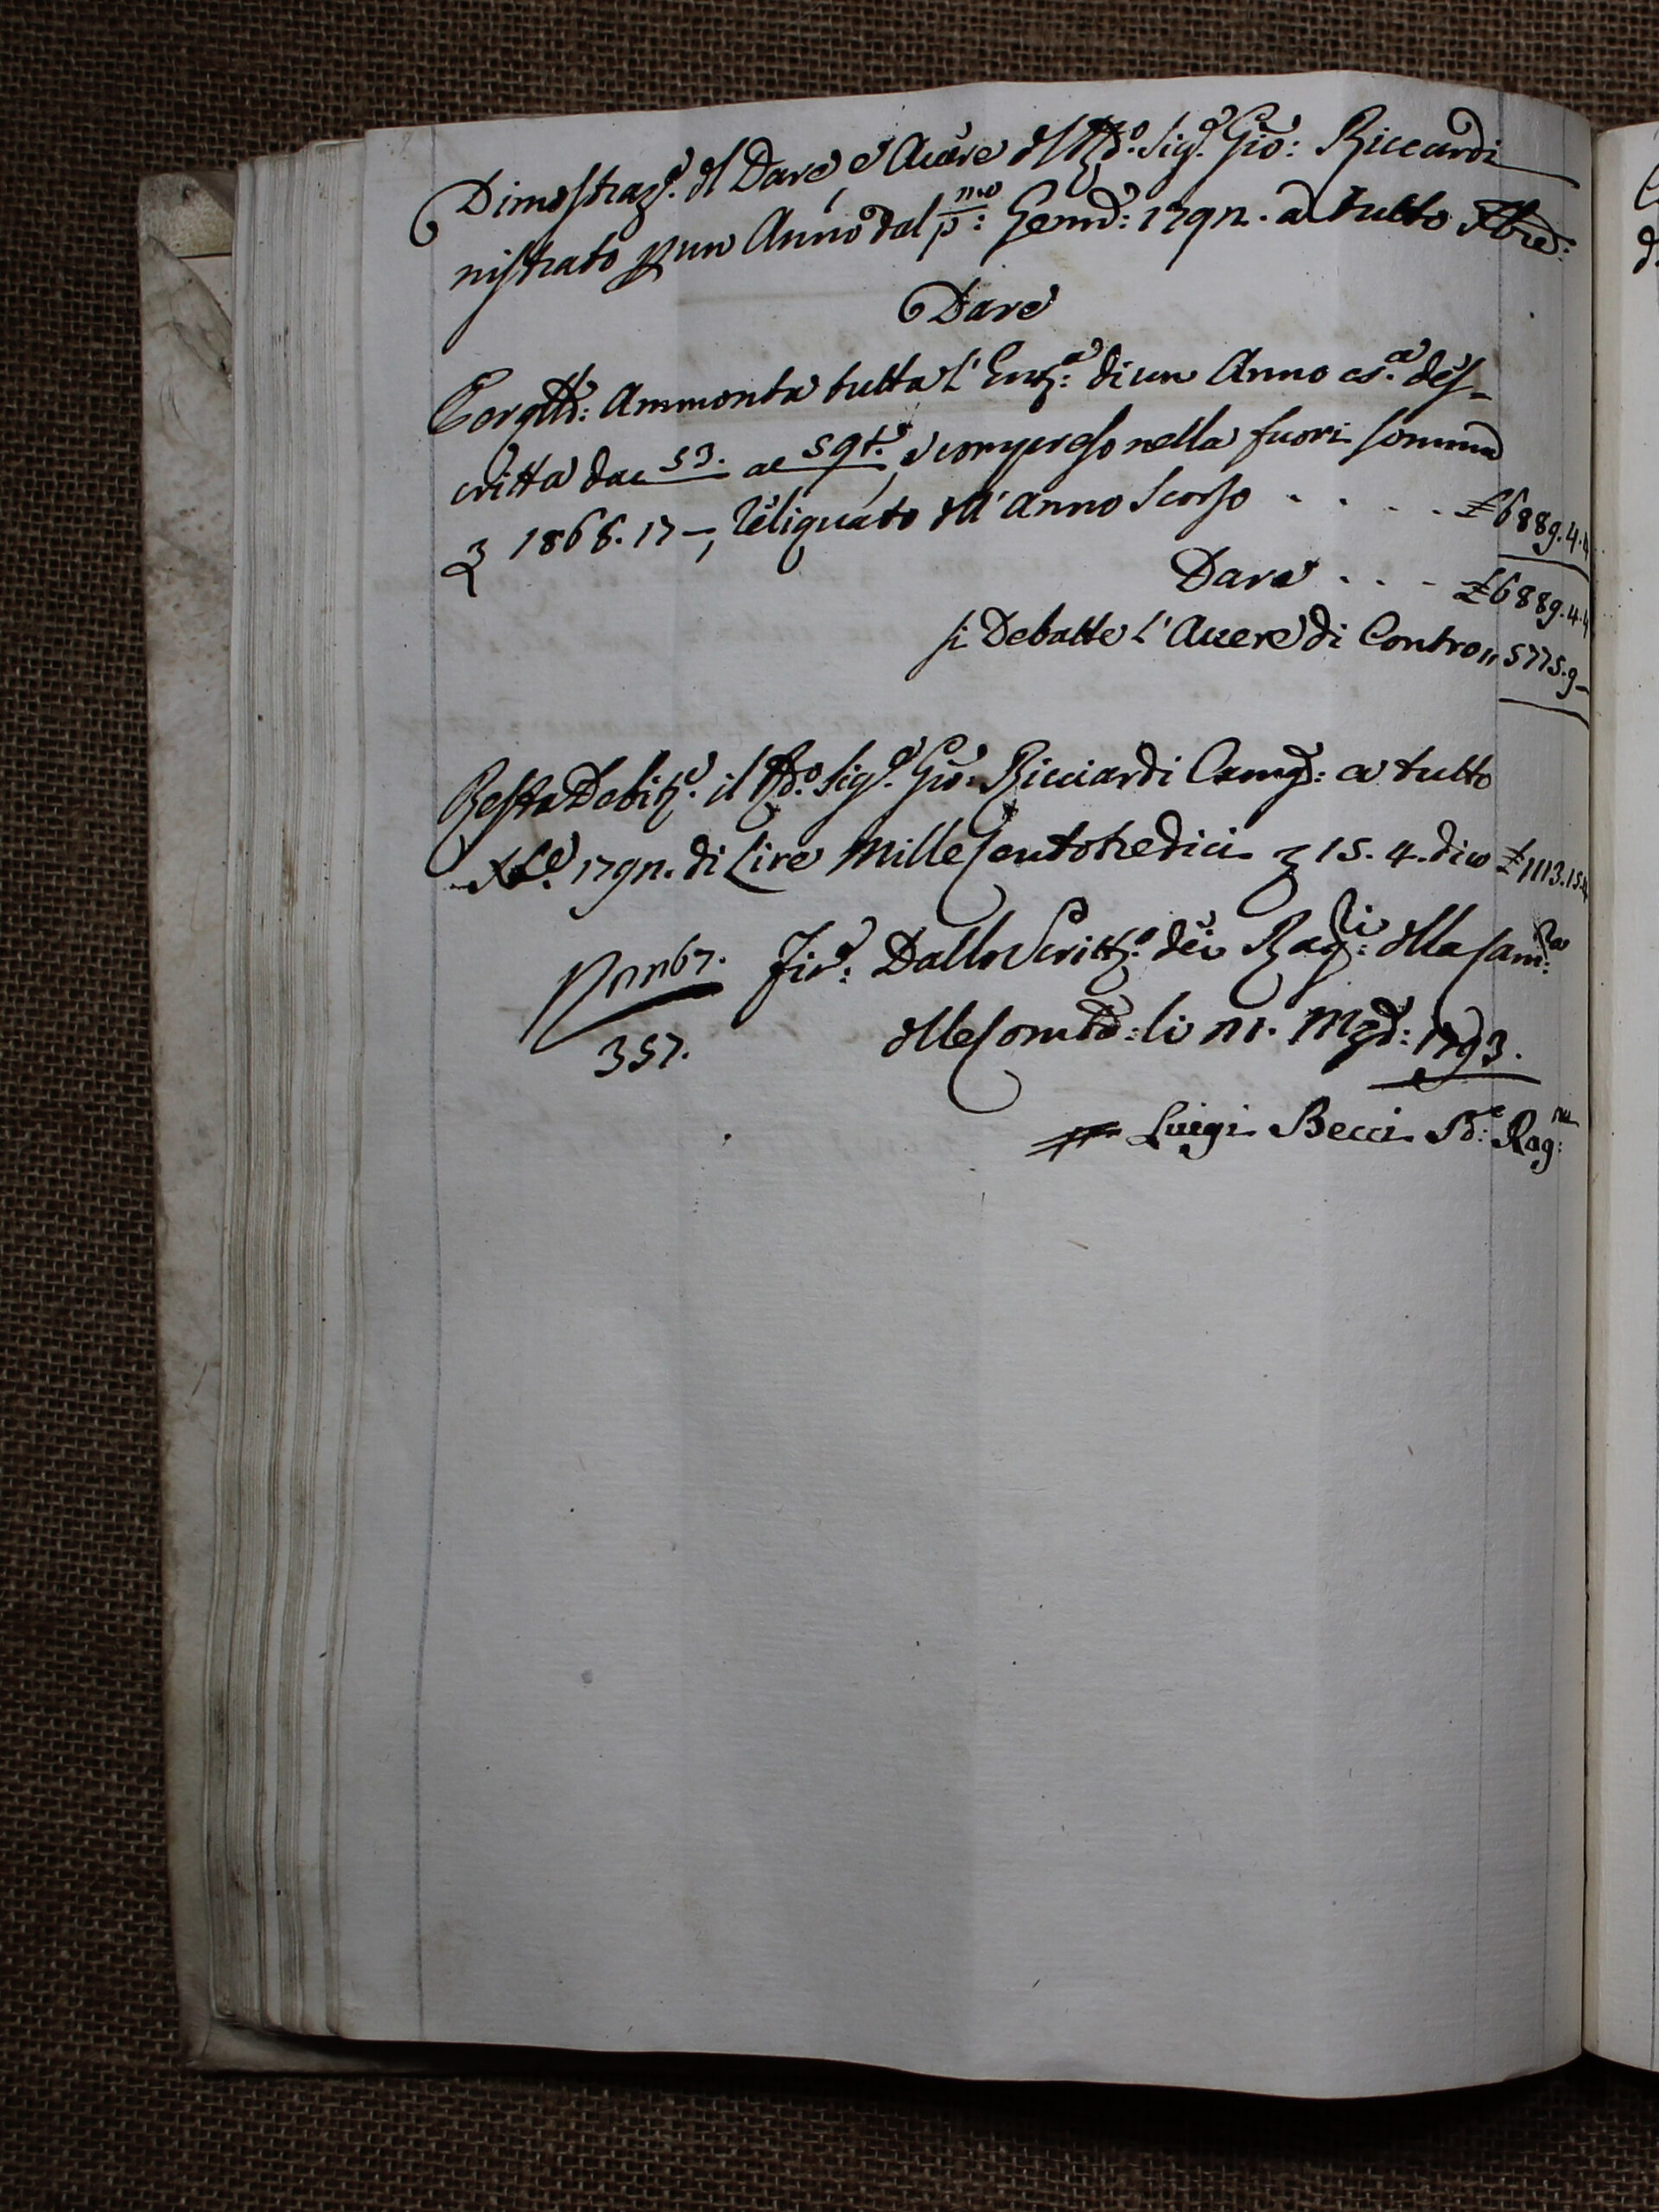 Dimostraz.e del Dare, e Avere del Rdo: Sig.r Gio: Riccardi
nistrato p un Anno dal pmo: Genn: 1792. a tutto Xbre:
Dare
Ammonta tutta l'Entr.a di un Anno des-
critta da c 53. a c 59t.o, e compreso nella fuori somma
£ 1866. 17 –, Reliquato dell'Anno Scorso . . . . £ 6889. 4. 4
Dare . . . £ 6889. 4. 4
si Debatte l'Avere di Contro " 5775. 9 –
Resta Debit.e il Rdo: Sig.r Gio: Ricciardi Camg: a tutto
Xbe. 1792. di Lire Mille Centotredici £ 15. 4. dico £ 1113. 15. 4
Dallo Scritt.o dei Rag.ti della Cam.ra
357.
delle Comtà: li 21. Mgo: 1793.
Luigi Becci Rag: